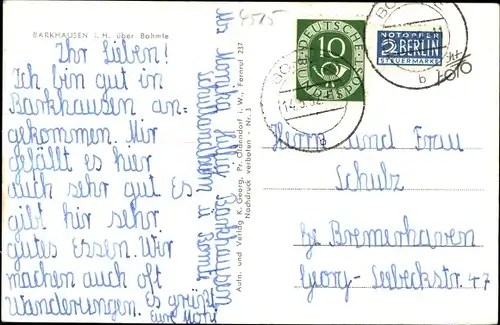 BARKHAUSEN i. H. über Bohmte
Ihr Lieben!
Ich bin gut in
Barkhausen an-
gekommen. Mir
gefällt es hier
auch sehr gut Es
gibt hir sehr
gutes Essen. Wir
machen auch oft
Wanderungen. Es grüßt
Eure
Aufn. und Verlag K. Georg, Pr. Oldendorf i. W., Fernruf 237
Nachdruck verboten Nr. 3
4515
DEUTSCHE
10
BUNDESPOST
NOTOPFER
2 BERLIN
STEUERMARKE
Herrn und Frau
Schulz
Bremerhaven
Georg-Seebeckstr. 47